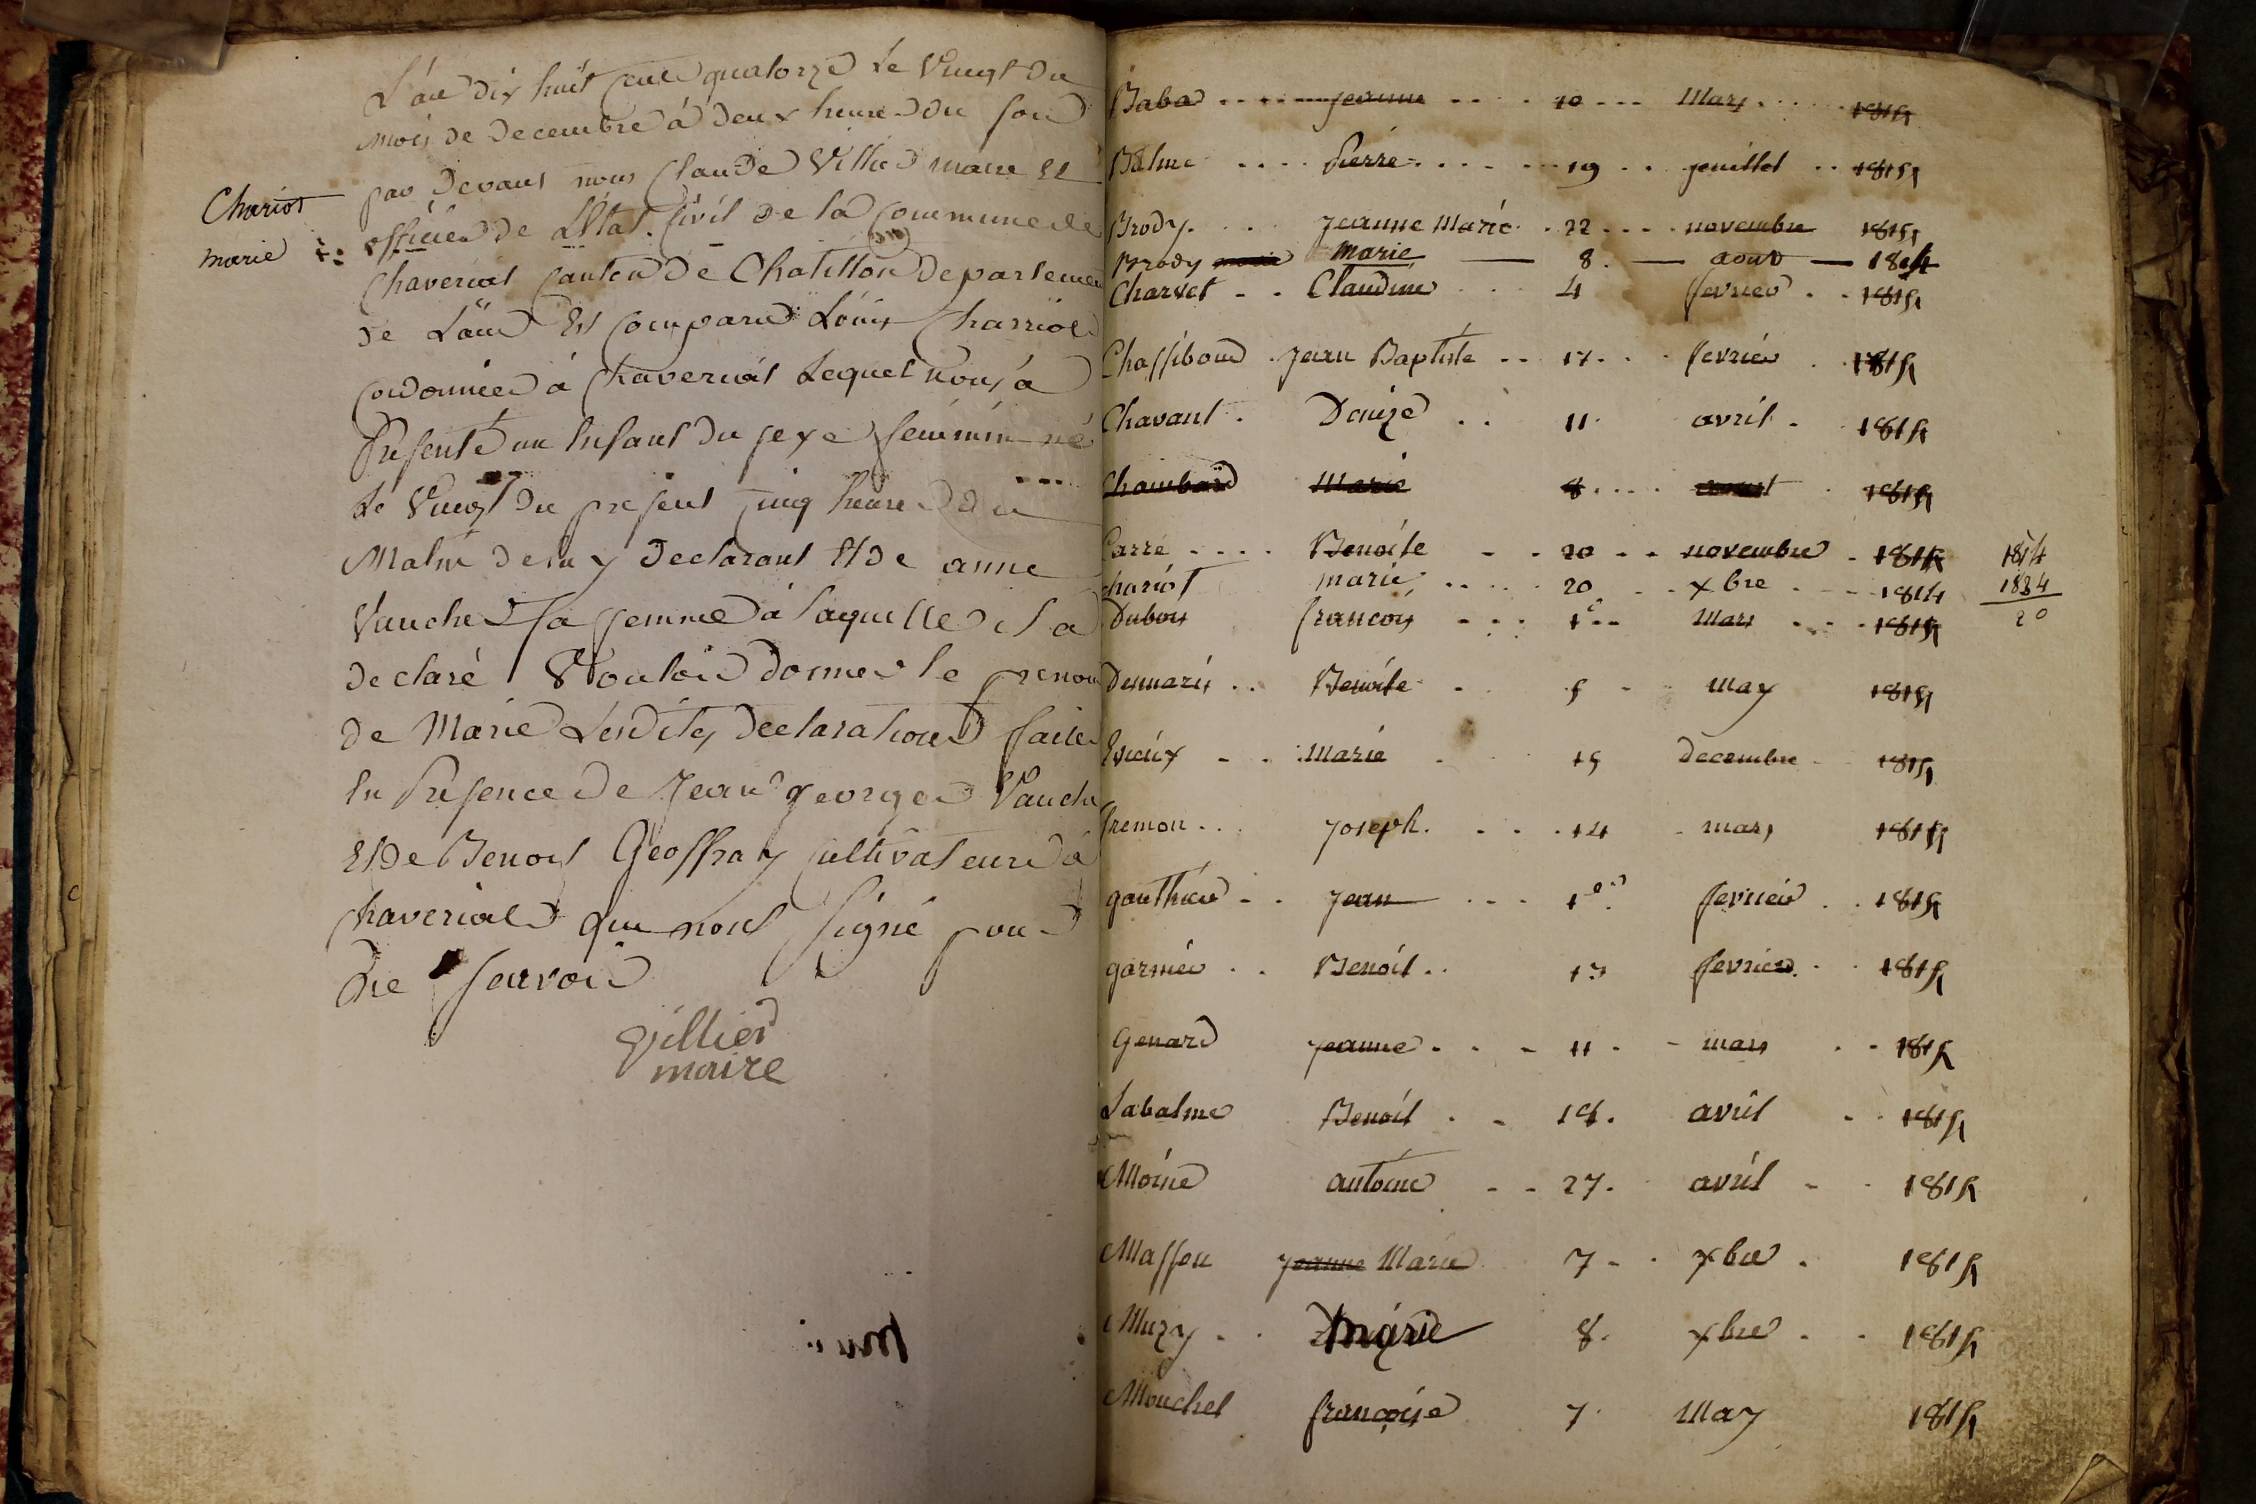 L'an dix huit cent quatorze Le Vingt Du
mois de decembre à deux heure du soir
par devant nous Claude Villier maire Et
Chariot
marie
officier de L'Etat Civil de la Commune de
Chaveriat Canton de Chatillon departement
de L'ain Est Comparu Louis Charriot
Cordonnier à Chaveriat Lequel nous à
Presenté un Enfant du sexe feminin né
Le Vingt du present Cinq heure du
Matin de luy Declarant Et de anne
Vaucher sa femme à laquelle il a
declaré Vouloir donner le prenom
de Marie Lesdites declarations faite
En Presence de Jean georges Vauche
Et De Benoit Geoffray Cultivateur à
Chaveriat qui nont signé pour
ne savoir
Villier
maire
Babad jeanne 10 Mars 1815
Balme Pierre 19 jeuillet 1815
Brody jeanne Marie 22 novembre 1815
Brody marie 8 aout 1814
Charvet Claudine 4 fevrier 1815
Chassibout jean Baptiste 17 fevrier 1815
Chavant Denize 11 avril 1815
Chambard Marie 8 aoust 1815
Carré Benoite 20 novembre 1815 1814
chariot marie 20 xbre 1814 1834
Dubois francois 1e Mars 1815 20
Desmaris Benoite 5 may 1815
Marie 15 decembre 1815
fremon joseph 14 mars 1815
gauthier jean 1er fevrier 1815
garnier Benoit 13 fevrier 1815
Genard jeanne 11 mars 1815
Labalme Benoit 18 avril 1815
Moine antoine 27 avril 1815
Masson jeanne Marie 7 xbre 1815
Muzy Marie 8 xbre 1815
Mouchet françoise 7 May 1815